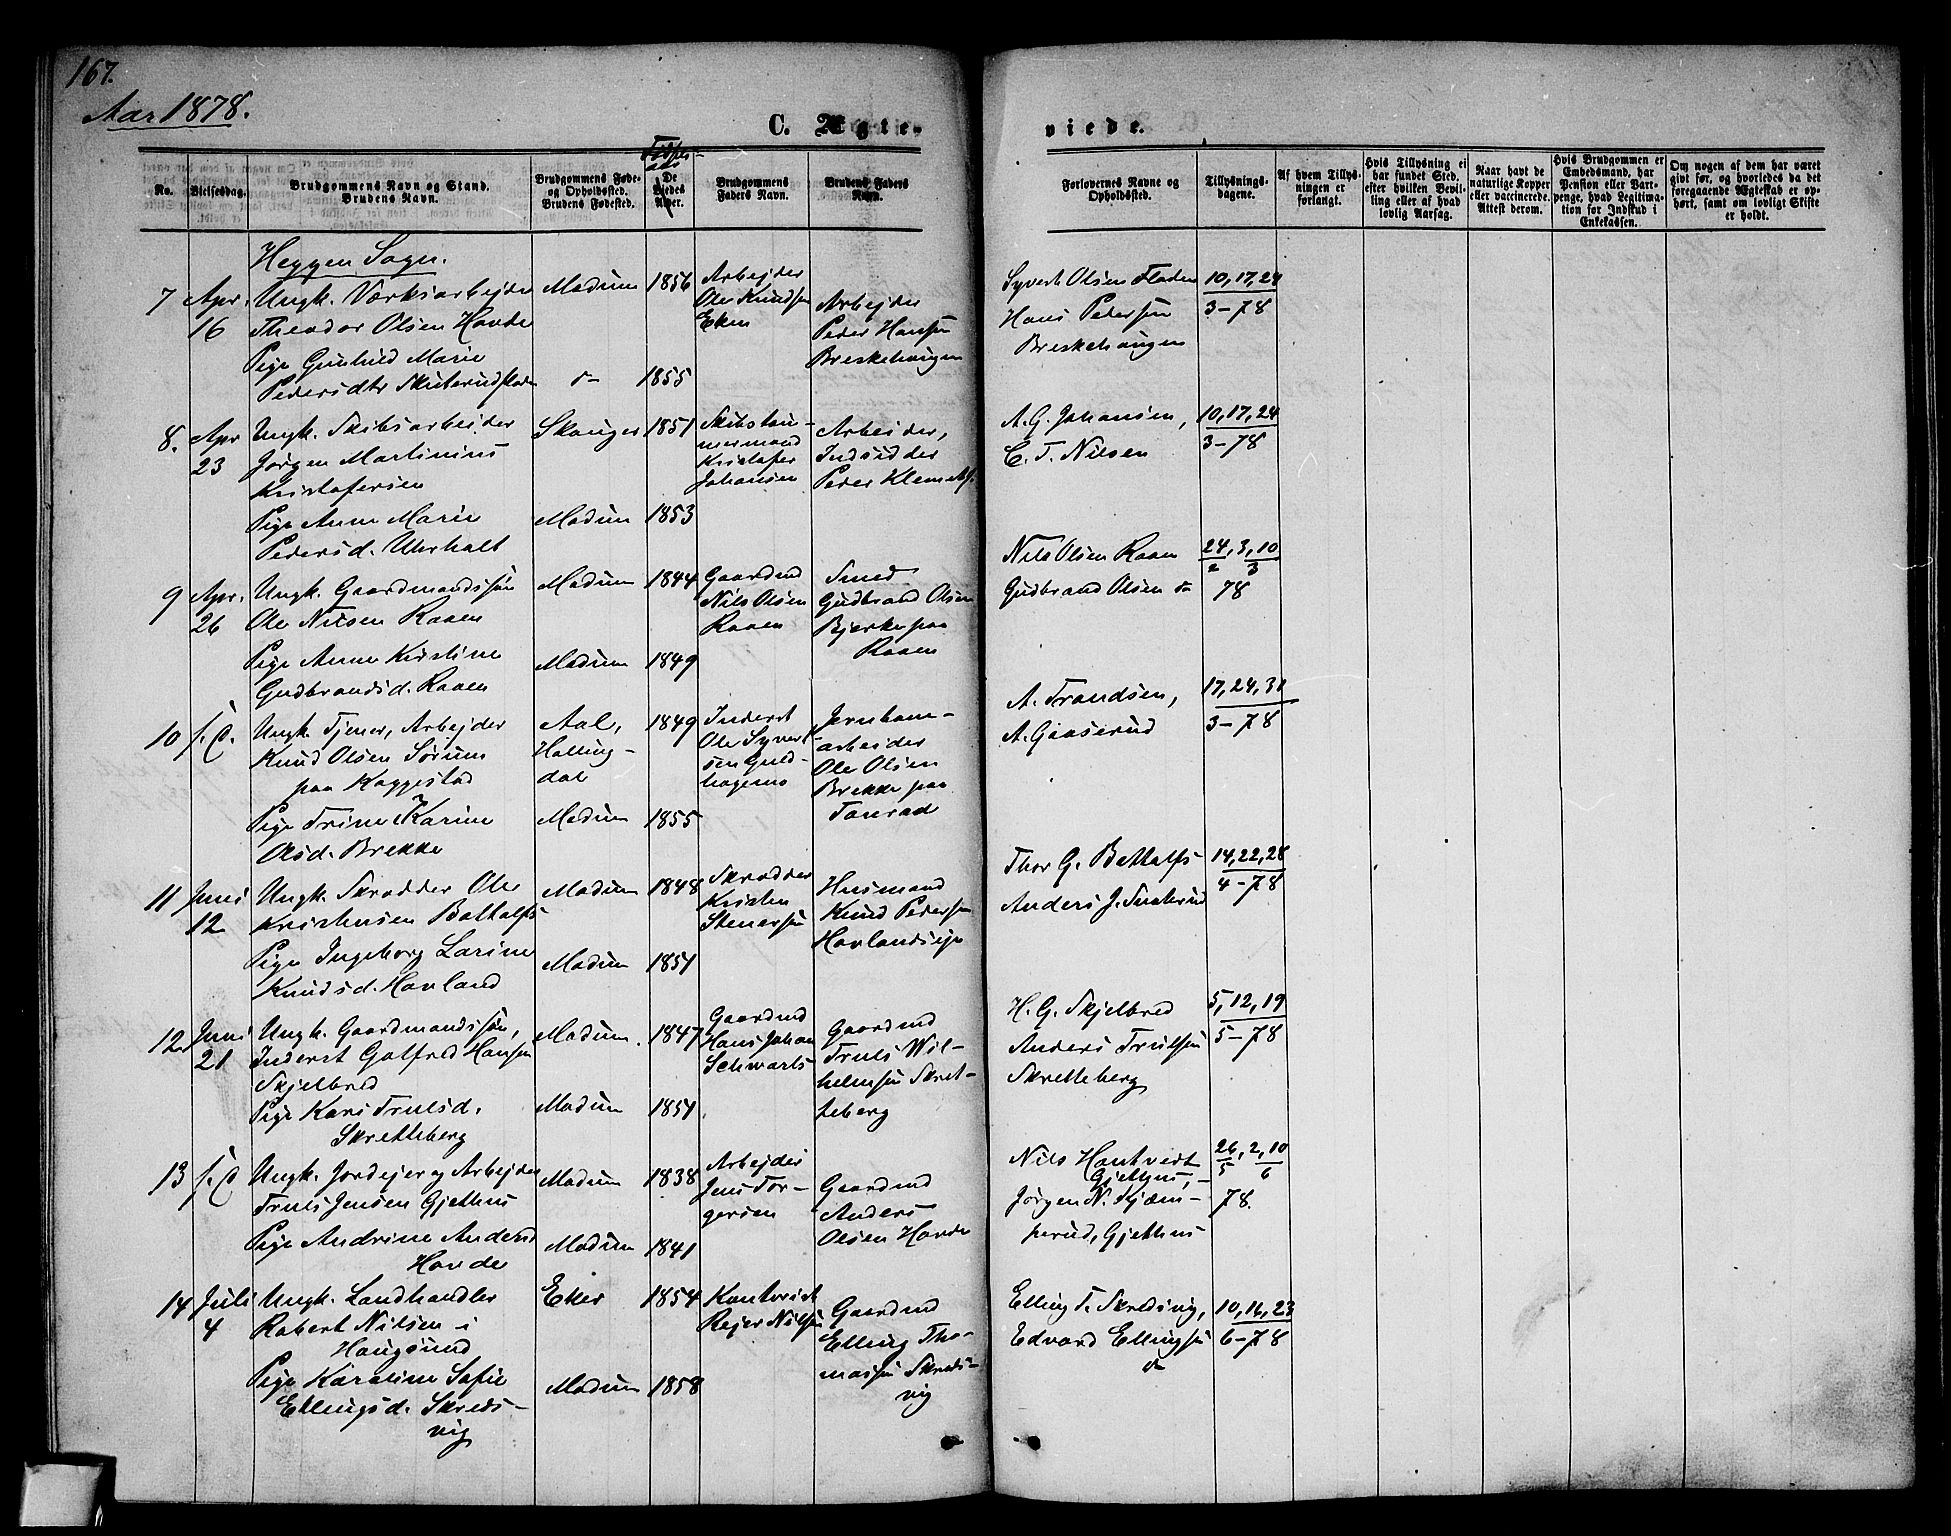 167.
Aar 1878.
C. Ægte-
viede.
No.
Vielsesdag.
Brudgommens Navn og Stand.
Brudens Navn.
Brudgommens Føde-
og Opholdssted.
Brudens Fødested.
De
Viedes
Alder.
Brudgommens
Faders Navn.
Brudens Faders
Navn.
Forlovernes Navne og
Opholdssted.
Tillysnings-
dagene.
Af hvem Tillys-
ningen er
forlangt.
Hvis Tillysning ei
har fundet Sted,
efter hvilken Bevil-
ling eller af hvad
lovlig Aarsag.
Naar havt de
naturlige Kopper
eller vaccinerede.
Attest derom.
Hvis Brudgommen er
Embedsmand, har
Pension eller Vart-
penge, hvad Legitima-
tion for Indskud i
Enkekassen.
Om nogen af dem har været
gift før, og hvorledes da det
foregaaende Ægteskab er op-
hørt, samt om lovligt Skifte
er holdt.
Heggen Sogn.
7
Apr.
16
Ungk. Værksarbejder
Theodor Olsen Hovde
Pige Gunhild Marie
Pedersdtr Skuterudfloden
Modum
1856
1855
Arbejder
Ole Knudsen
Eken
Arbejder
Peder Hansen
Breskehaugen
Syvert Olsen Floden
Hans Pedersen
Breskehaugen
10, 17, 24
3-78
8.
Apr
23
Ungk. Skibsarbeider
Jørgen Martinius
Kristofersen
Pige Anne Marie
Pedersd. Uhrholt
Skouger
Modum
1851
1853
Skibstøm-
mermand
Kristofer
Johansen
Arbeider,
Indsidder
Peder Klemets.
A. G. Johansen,
C. T. Nilsen
10, 17, 24
3-78
9
Apr.
26
Ungk. Gaardmandssøn
Ole Nilsen Raaen
Pige Anne Kristine
Gudbrandsd. Raaen
Modum
Modum
1844
1849
Gaardmd
Nils Olsen
Raaen
Smed
Gudbrand Olsen
Bjerke paa
Raaen
Nils Olsen Raaen
Gudbrand Olsen
24, 3, 10
2 3
78
10
s. D.
Ungk. Tjener, Arbejder
Knud Olsen Sørum
paa Kaggestad
Pige Trine Karine
Olsd. Brekke
Aal,
Halling-
dal
Modum
1849
1855
Inderst
Ole Syvert-
sen Guld-
hagemo
Jernbane-
arbeider
Ole Olsen
Brekke paa
A. Trondsen,
A. Gaaserud
17, 24, 31
3-78
11
Juni
12
Ungk. Skrædder Ole
Kristensen Bottolfs
Pige Ingeborg Larine
Knudsd. Hovland
Modum
Modum
1848
1851
Skrædder
Kristen
Stenersen
Husmand
Knud Pedersen
Hovlandseje
Thor G. Bottolfs
Anders J.
14, 22, 28
4-78
12.
Juni
21
Ungk. Gaardmandssøn,
Inderst Gotfred Hansen
Skjelbred
Pige Kari Trulsd.
Skretteberg
Modum.
Modum
1847
1851
Gaardmd
Hans Johan
Schwarts
Gaardmd
Truls Wil-
helmsen Skret-
teberg
H. G. Skjelbred
Anders Trulsen
Skretteberg
5, 12, 19
5-78
13
s. D
Ungk. Jordejer og Arbejder
Truls Jensen Gjethus
Pige Andrine Andersd
Hovde
Modum
Modum
1838
1841
Arbejder
Jens Tor-
gersen
Gaardmd
Anders
Olsen Hovde
Nils Hontvedt
Gjethus,
Jørgen N. Kjæm-
perud, Gjethus
26, 2, 10
5 6
78.
14
Juli
4
Ungk. Landhandler
Robert Nilsen i
Haugsund
Pige Karoline Sofie
Ellingsd. Skreds-
vig
Eker
Modum
1854
1858
Rejer Nilsen
Gaardmd
Elling Tho-
massen Skreds-
vig
Elling T. Skredsvig,
Edvard Ellingsen
10, 16, 23
6-78